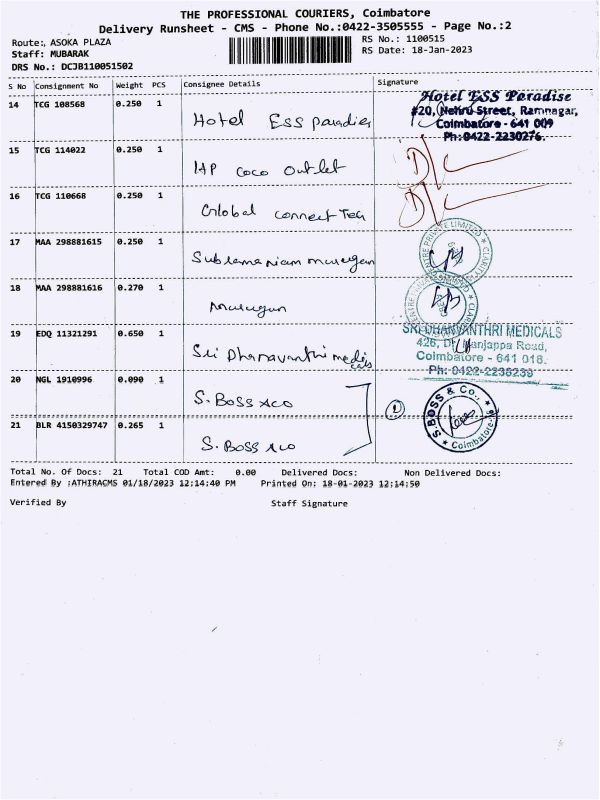 THE PROFESSIONAL COURIERS, Coimbatore
Delivery Runsheet - CMS - Phone No.:0422-3505555 - Page No.:2
Route:, ASOKA PLAZA RS No.: 1100515
Staff: MUBARAK RS Date: 18-Jan-2023
DRS No.: DCJB110051502
S No Consignment No Weight PCS Consignee Details Signature
14 TCG 108568 0.250 1 Hotel Ess paradies
Hotel ESS Paradise
#20, Nehru Street, Ramnagar,
Coimbatore - 641 009
Ph:0422-2230276.
15 TCG 114022 0.250 1 HP coco outlet D/c
16 TCG 110668 0.250 1 Global connect Tech D/c
17 MAA 298881615 0.250 1 Subramaniam murugan
18 MAA 298881616 0.270 1 murugan
19 EDQ 11321291 0.650 1 Sri Dhanavanthi medicals
SRI DHANVANTHRI MEDICALS
426, Dr. Nanjappa Road,
Coimbatore - 641 018.
Ph: 0422-2236239
20 NGL 1910996 0.090 1 S.Boss &co
2
S.BOSS & Co., Coimbatore-9
21 BLR 4150329747 0.265 1 S.Boss &co
Total No. Of Docs: 21 Total COD Amt: 0.00 Delivered Docs: Non Delivered Docs:
Entered By :ATHIRACMS 01/18/2023 12:14:40 PM Printed On: 18-01-2023 12:14:50
Verified By Staff Signature